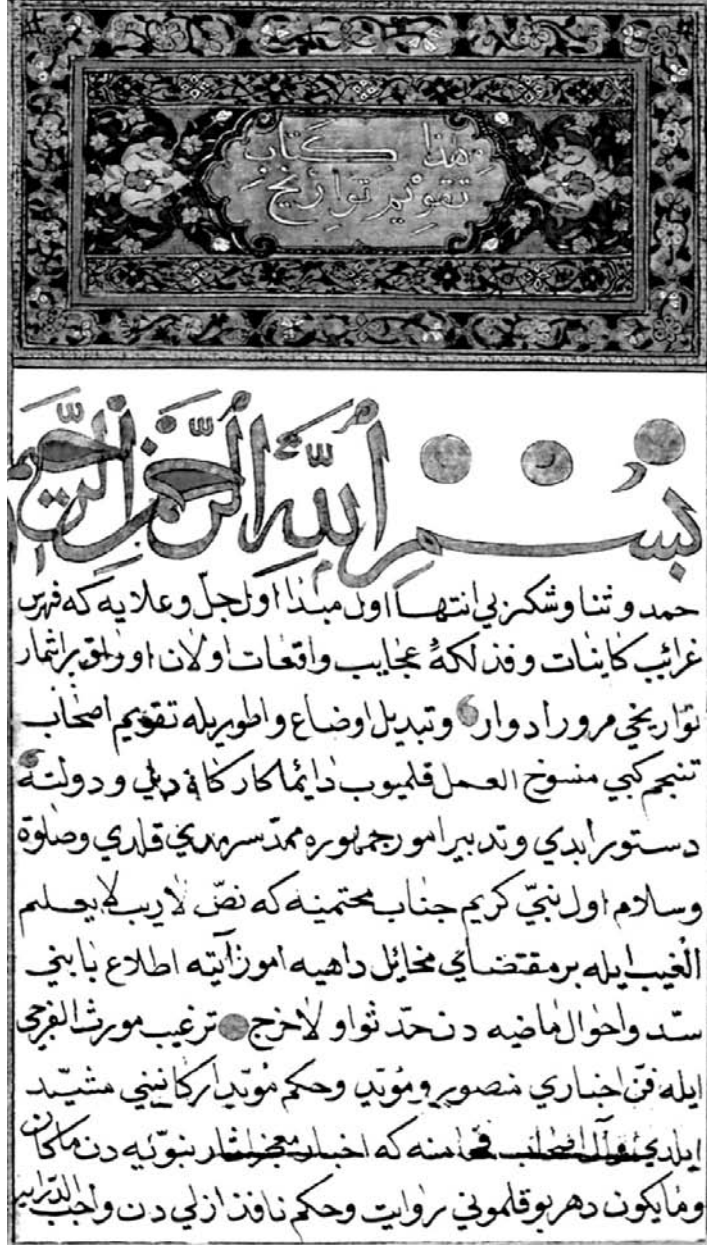 هذا كتاب
تقويم تواريخ
بسم الله الرحمن الرحيم
حمد و ثنا و شكر بي انتها اول مبدأ اول جلّ و علايه كه فهرس
غرائب كاينات و فذلكهٔ عجايب واقعات اولان اوراق پراثمار
تواريخي مرور ادوار و تبديل اوضاع و اطوريله تقويم اصحاب
تنجيم كبي منسوخ العمل قلميوب دايما كاركاه و دولته
دستور ابدي و تدبير امور جمهوره ممدّ سرمدي قلدي و صلوة
و سلام اول نبيّ كريم جناب محتمينه كه نصّ لاريب لا يعلم
الغيب ايله بر مقتضاي مخائل داهيه امور آتيه اطلاع بابني
سدّ و احوال ماضيه دن حدّثوا و لا حرج ترغيب مورث الفرجي
ايله فنّ اخباري منصور و مؤيد و حكم مؤيد اركانيني مشيّد
ايلدي و آل اصحاب فخامنه كه اخبار معجز اشار نبوّيه دن ماكان
و مايكون دهر بوقلموني روايت و حكم نافذ ازلي دن واجب